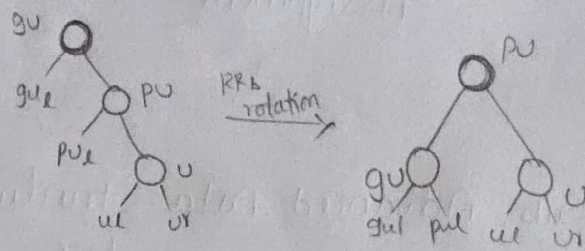 gu
gul
pu
pul
u
ul ur
RRb
rotation
pu
gu
gul pul
u
ul ur